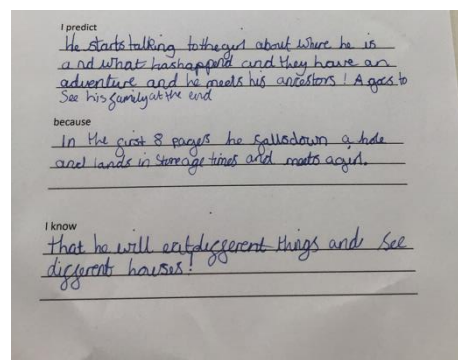 I predict
He starts talking to the girl about where he is
and what has happend and they have an
adventure and he meets his ancestors! A goes to
See his family at the end
because
In the first 8 pages he falls down a hole
and lands in stoneage times and meets a girl.
I know
that he will eat different things and see
different houses!